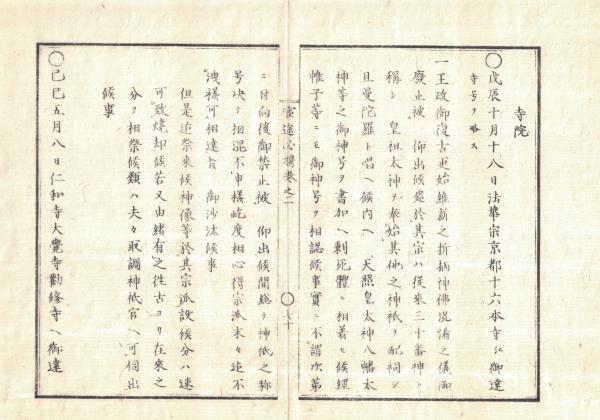 寺院
〇戊辰十月十八日法華宗京都十六本寺江御達
寺号ヲ略ス
一王政御復古更始維新之折柄神佛混淆之儀御
廃止被 仰出候處於其宗ハ従來三十番神ト
稱シ 皇祖太神ヲ奉始其他之神祇ヲ配祠シ
且曼陀羅ト唱ヘ候内ヘ 天照皇太神八幡太
神等之御神号ヲ書加ヘ剰死體ニ相着セ候經
帷子等ニモ御神号ヲ相認候事實ニ不謂次第
ニ付向後御禁止被 仰出候間総テ神祇之称
号决シ相混不申様屹度相心得宗派末々迄不
洩様可相達旨 御沙汰候事
但是迄祭來候神像等於其宗派設候分ハ速
可致燒却候若又由緒有之往古ヨリ在來之
分ヲ相祭候類ハ夫々取調神祇官ヘ可伺出
候事
〇己巳五月八日仁和寺大覺寺勸修寺ヘ御達
巻之二
〇七十